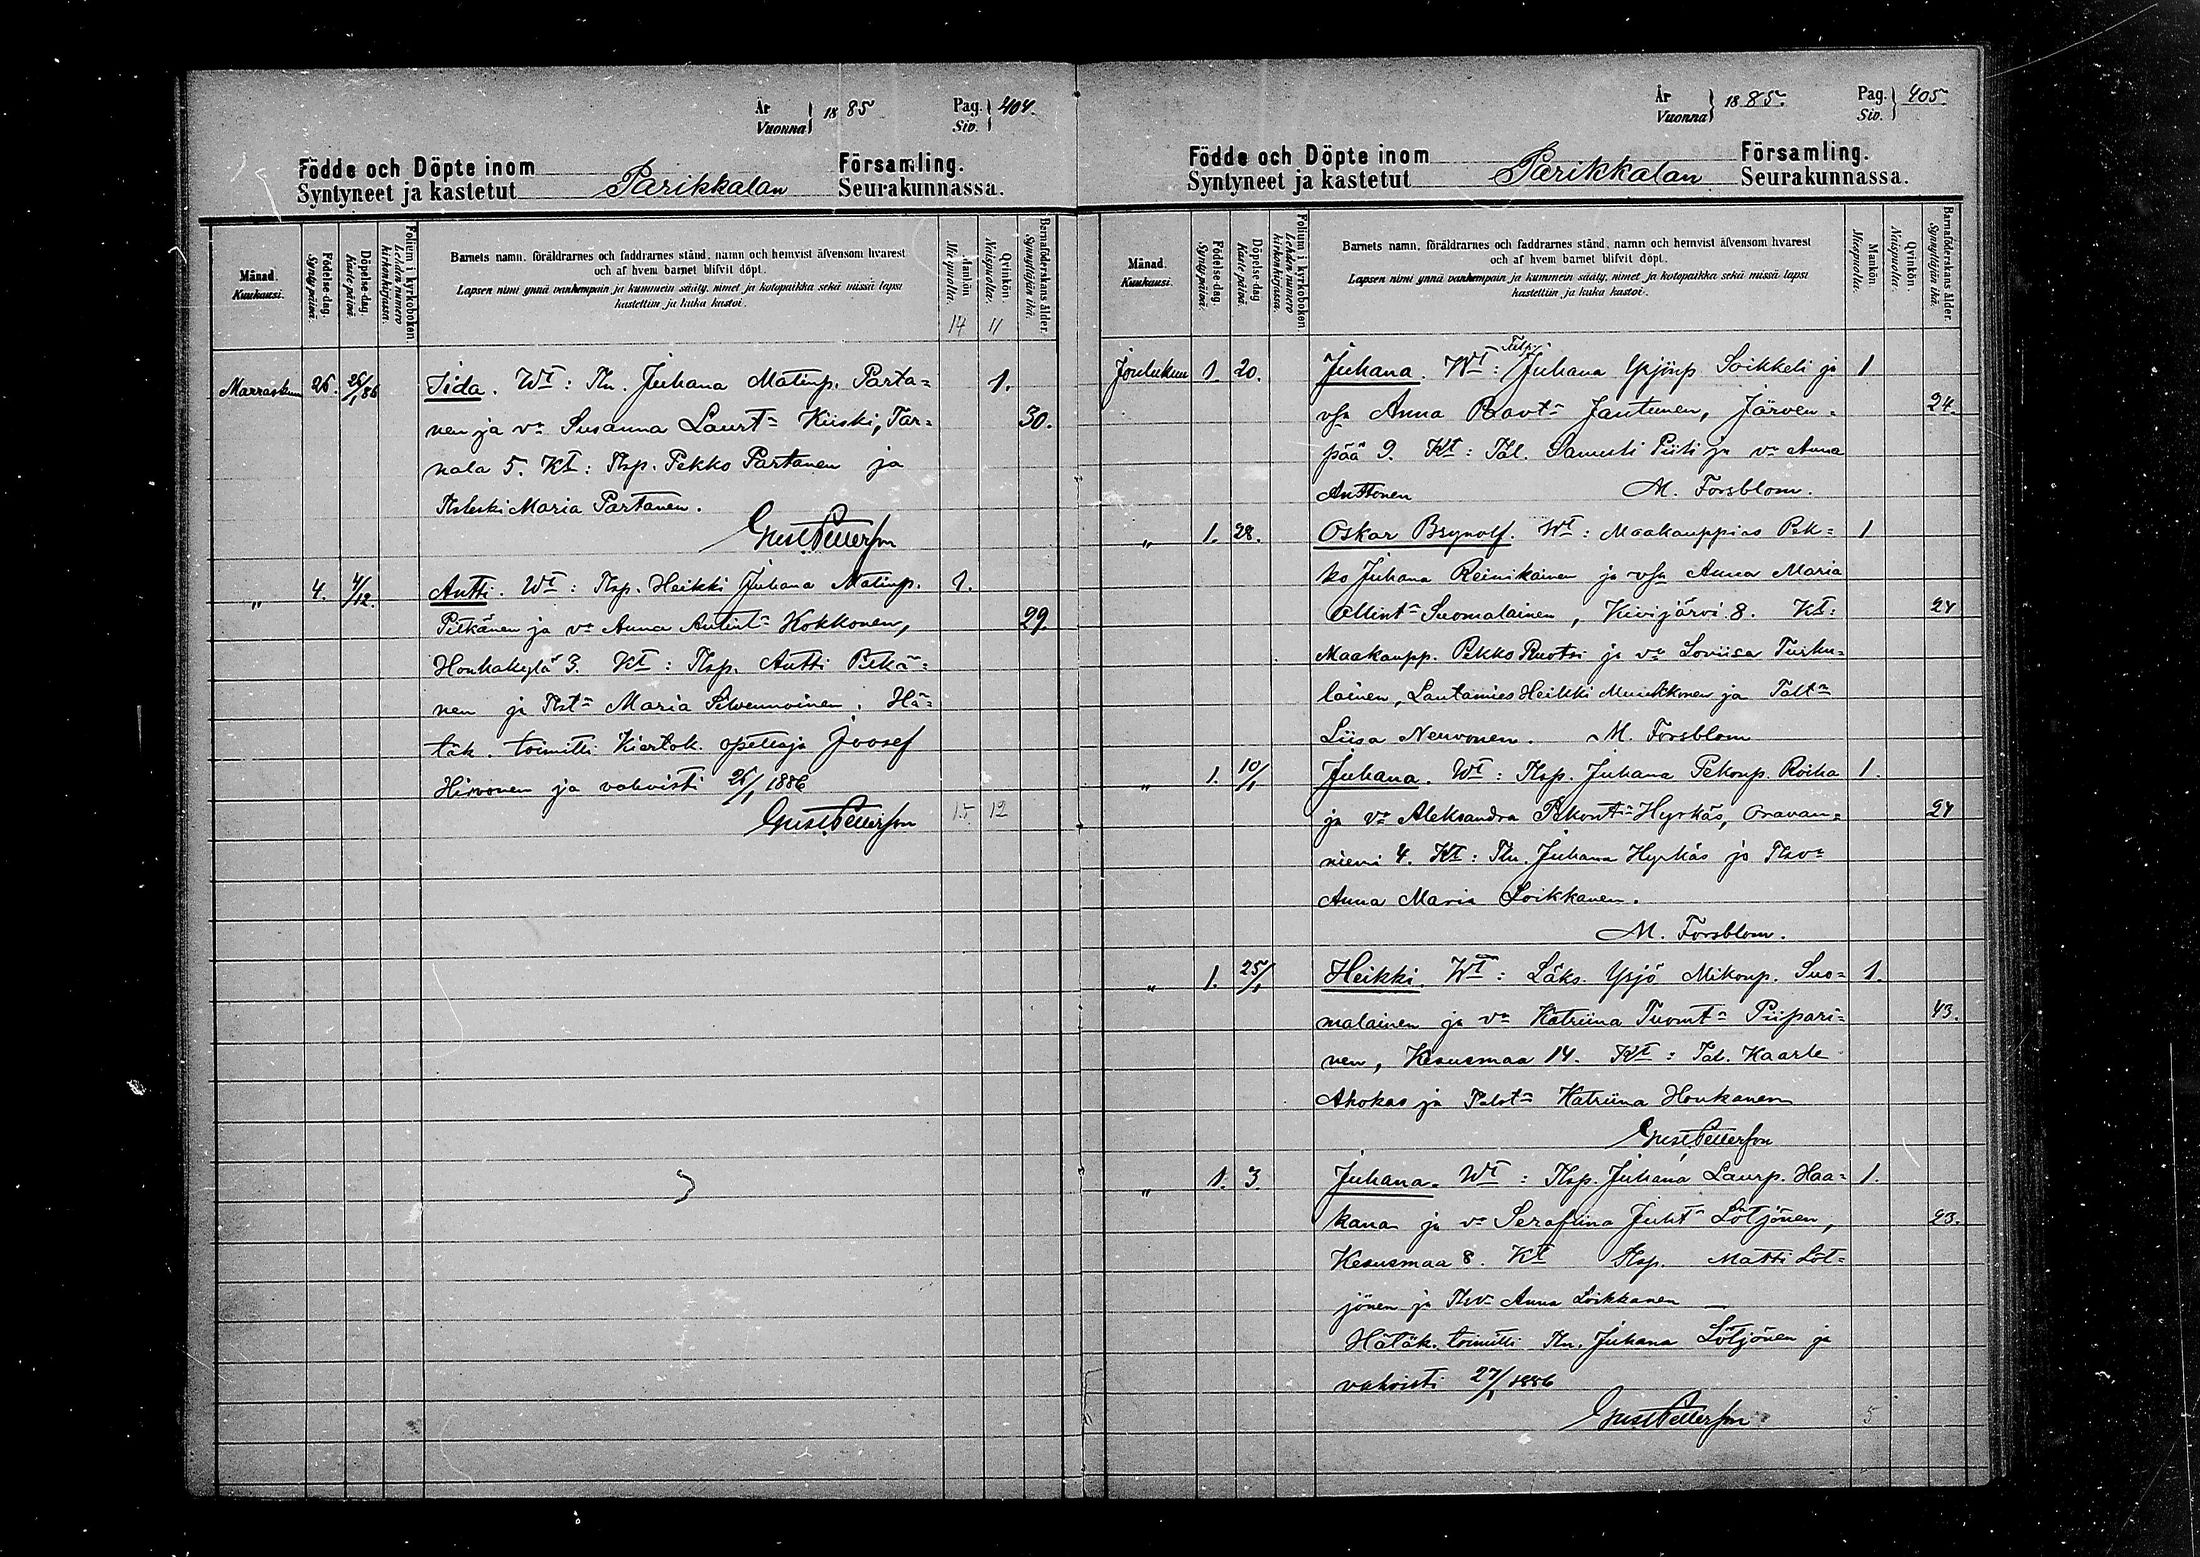 År
Vuonna } 1885
Pag.
Siv. } 404.
Födde och Döpte inom
Syntyneet ja kastetut Parikkalan Församling.
Seurakunnassa.
Månad.
Kuukausi.
Födelse-dag.
Syntypäivä.
Döpelse-dag.
Kastepäivä.
Folium i kyrkoboken
Lehden numero
kirkonkirjassa.
Barnets namn, föräldrarnes och faddrarnes stånd, namn och hemvist äfvensom hvarest
och af hvem barnet blifvit döpt.
Lapsen nimi ynnä vanhempain ja kummein sääty, nimet ja kotopaikka sekä missä lapsi
kastettiin ja kuka kastoi.
Mankön
Miespuolia.
Qvinkön
Naispuolia.
Barnaföderskans ålder.
Synnyttäjän ikä.
14 11
Marraskuu 26. 26/1 86 Iida. Wt: Tln. Juhana Matinp. Parta= 1.
nen ja vo Susanna Laurt. Kiiski, Tar= 30.
nala 5. Kt: Tlsp. Pekko Partanen ja
Tsleski Maria Partanen.
Gust. Petterson
" 4. 4/12. Antti. Wt: Tlsp. Heikki Juhana Matinp. 1.
Pitkänen ja vo Anna Antint. Kokkonen, 29.
Honkakylä 3. Kt: Tlsp. Antti Pitkä=
nen ja Tlst. Maria Silvennoinen. Hä=
täk. toimitti Kiertok. opettaja Joosef
Hirvonen ja vahvisti 26/1 1886
Gust. Petterson 15 12
År
Vuonna } 1885.
Pag.
Siv. } 405.
Födde och Döpte inom
Syntyneet ja kastetut Parikkalan Församling.
Seurakunnassa.
Månad.
Kuukausi.
Födelse-dag.
Syntypäivä.
Döpelse-dag.
Kastepäivä.
Folium i kyrkoboken
Lehden numero
kirkonkirjassa.
Barnets namn, föräldrarnes och faddrarnes stånd, namn och hemvist äfvensom hvarest
och af hvem barnet blifvit döpt.
Lapsen nimi ynnä vanhempain ja kummein sääty, nimet ja kotopaikka sekä missä lapsi
kastettiin ja kuka kastoi.
Mankön
Miespuolia.
Qvinkön
Naispuolia.
Barnaföderskans ålder.
Synnyttäjän ikä.
Joulukuu 1. 20. Juhana. Wt: Tlsp. Juhana Yrjönp Soikkeli ja 1
vsa Anna Paavt. Jantunen, Järven= 24.
pää 9. Kt: Tal. Samuli Piiti ja vo Anna
Anttonen M. Forsblom.
" 1. 28. Oskar Brynolf. Wt: Maakauppias Pek= 1
ko Juhana Reinikainen ja vsa Anna Maria
Ollint. Suomalainen, Kivijärvi 8. Kt: 24
Maakaupp. Pekko Ruotsi ja vo Loviisa Turku=
lainen, Lautamies Heikki Muukkonen ja Talt.
Liisa Neuvonen. M. Forsblom
" 1. 10/1 Juhana. Wt: Tlsp. Juhana Pekonp. Roiha 1.
ja vo Aleksandra Pekont. Hyrkäs, Oravan= 24
niemi 4. Kt: Tln. Juhana Hyrkäs ja Tlsvo
Anna Maria Loikkanen.
M. Forsblom.
" 1. 25/1 Heikki. Wt: Läks. Yrjö Mikonp. Suo= 1.
malainen ja vo Katriina Tuomt. Piipari= 43.
nen, Kesusmaa 14. Kt: Tal. Kaarle
Ahokas ja Talst. Katriina Honkanen
Gust. Petterson
" 1. 3. Juhana. Wt: Tlsp. Juhana Laurp. Haa= 1.
kana ja vo Serafiina Juht. Lötjönen, 23.
Kesusmaa 8. Kt Tlsp. Matti Löt=
jönen ja Tlsvo Anna Loikkanen
Hätäk. toimitti Tln. Juhana Lötjönen ja
vahvisti 27/1 1886
Gust. Petterson 5